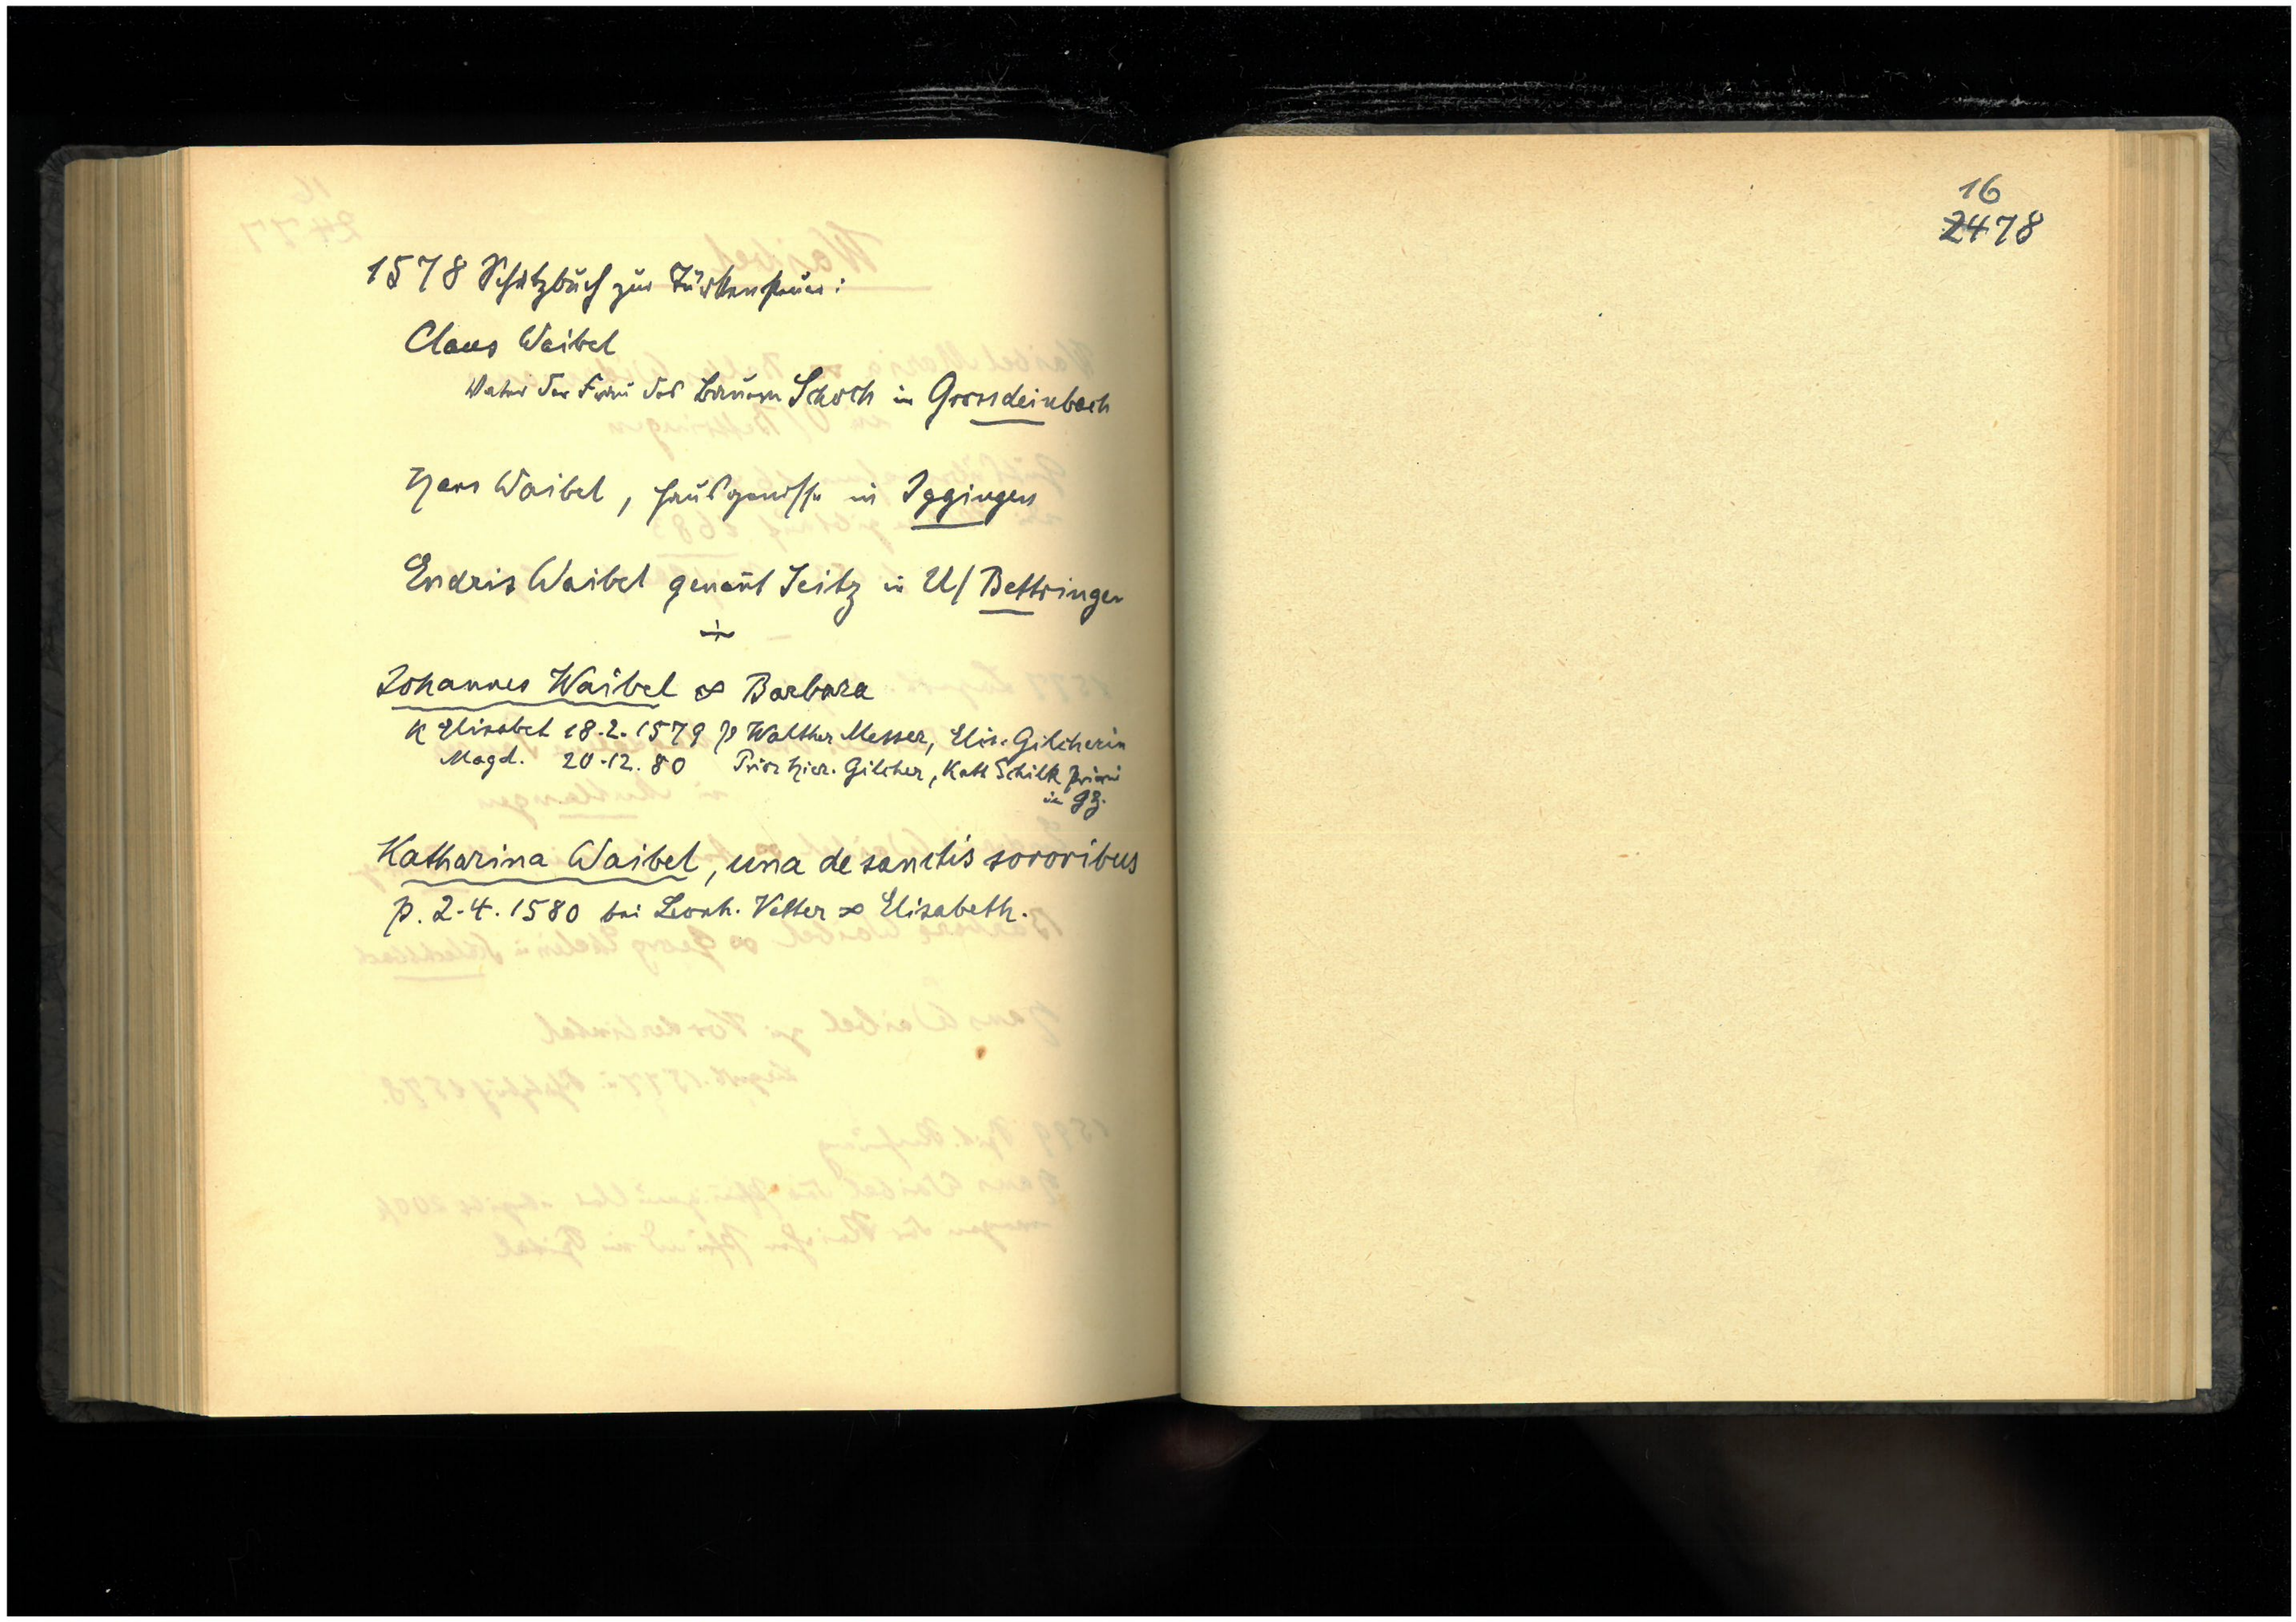 1578 Schatzbuch zur Türkensteuer:
Claus Waibel
Vater der Frau des Bauern Schoch in Grossdeinbach
Hans Waibel, Hausgenosse in Iggingen
Endris Waibel genañt Seitz in U/Bettringen
Johannes Waibel ∞ Barbara
K Elisabet 18.2.1579 p Walther Messer, Elis. Gilcherin
Magd. 20.12.80 Prior Hier. Gilcher, Kath Schilk
in gz.
Katharina Waibel, una de sanctis sororibus
p. 2.4.1580 bei Leonh. Vetter ∞ Elisabeth.
16
2478